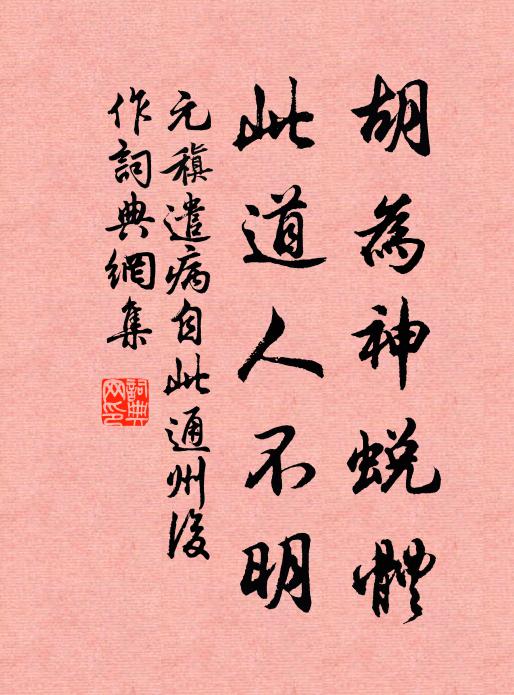 胡為神蛻體
此道人不明
元稹遣病自此通州後
作詞典網集
詞典网印